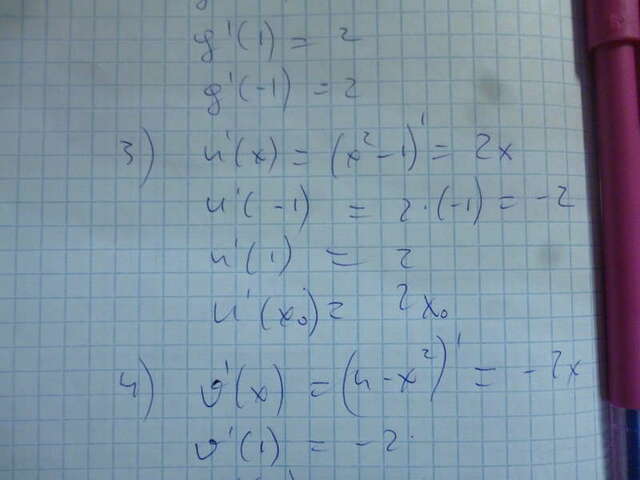 g'(1) = 2
g'(-1) = 2
3) u'(x) = (x² - 1)' = 2x
u'(-1) = 2·(-1) = -2
u'(1) = 2
u'(x₀) = 2x₀
4) v'(x) = (4 - x²)' = -2x
v'(1) = -2.